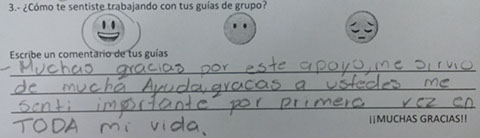 3.- ¿Cómo te sentiste trabajando con tus guías de grupo?
Escribe un comentario de tus guías
- Muchas gracias por este apoyo, me sirvio
de mucha Ayuda, gracas a ustedes me
senti importante por primera vez en
TODA mi vida.
¡¡MUCHAS GRACIAS!!